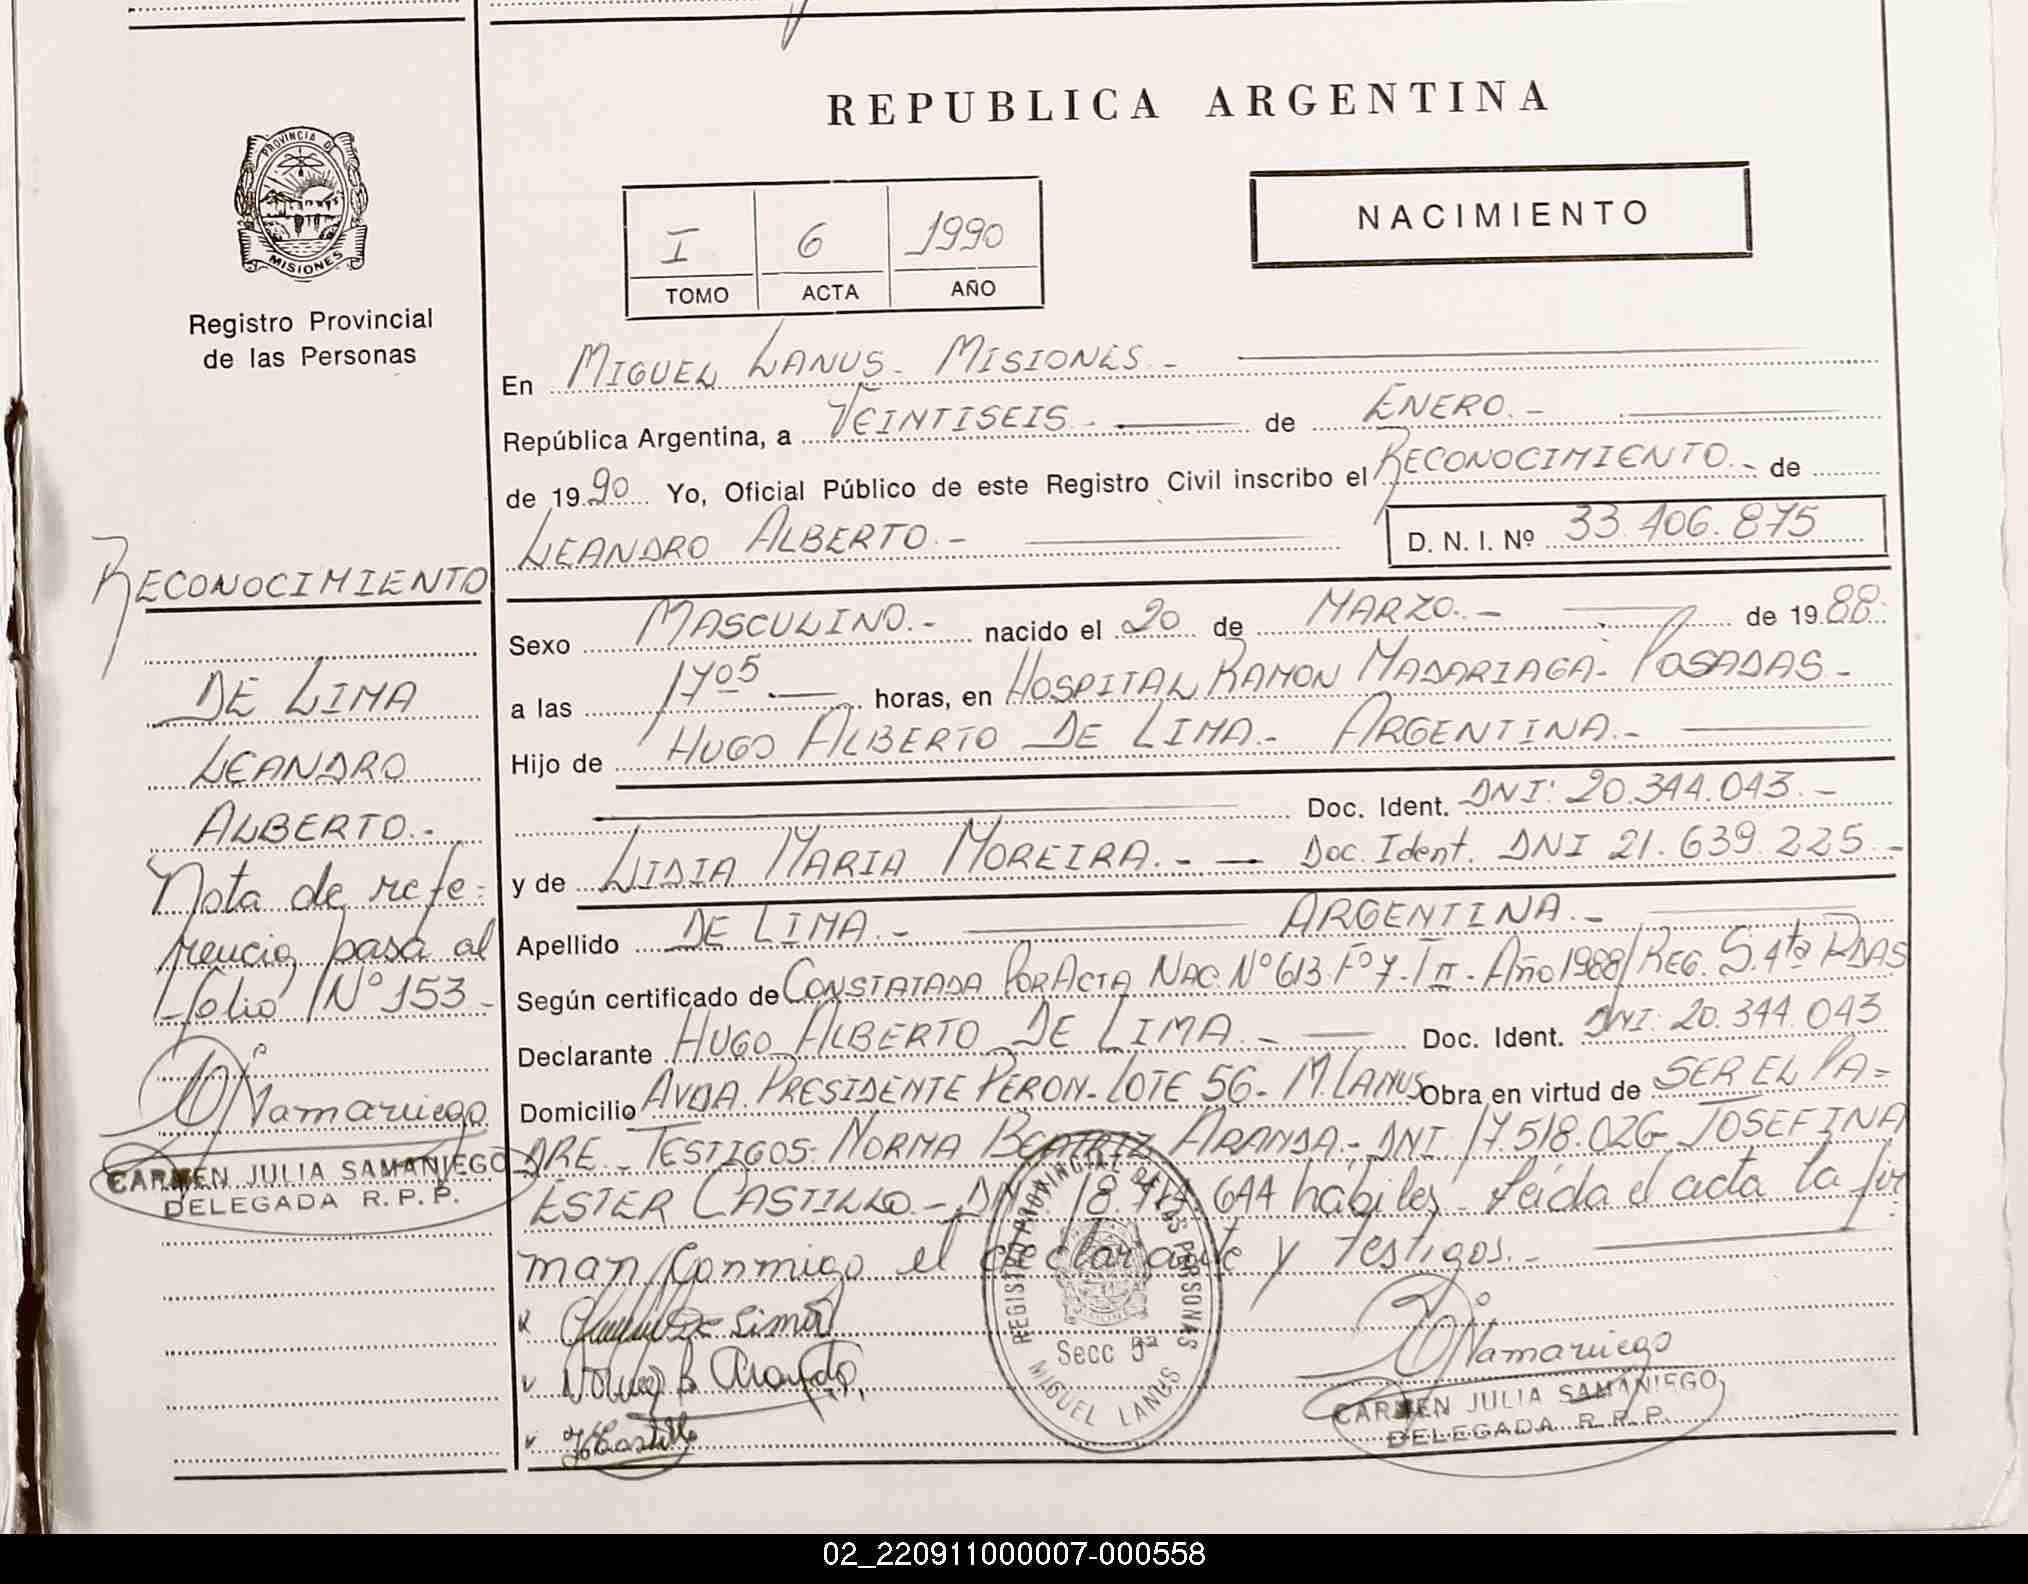 REPUBLICA ARGENTINA
PROVINCIA DE
MISIONES
Registro Provincial
de las Personas
I 6 1990
TOMO ACTA AÑO
NACIMIENTO
En MIGUEL LANUS - MISIONES.-
República Argentina, a VEINTISEIS.- de ENERO.-
de 1990 Yo, Oficial Público de este Registro Civil inscribo el RECONOCIMIENTO.- de
LEANDRO ALBERTO.- D. N. I. Nº 33.406.875
Sexo MASCULINO.- nacido el 20 de MARZO.- de 1988.
a las 1705.- horas, en HOSPITAL RAMON MADARIAGA- POSADAS-
Hijo de HUGO ALBERTO DE LIMA.- ARGENTINA.-
Doc. Ident. DNI: 20.344.043.-
y de LIDIA MARIA MOREIRA.- Doc. Ident. DNI 21.639.225-
Apellido DE LIMA.- ARGENTINA.-
Según certificado de CONSTATADA POR ACTA NAC. Nº 613. Fº 7. T II - Año 1988/ REG. S. 4ta PDAS
Declarante HUGO ALBERTO DE LIMA.- Doc. Ident. DNI: 20.344.043
Domicilio AVDA. PRESIDENTE PERON- LOTE 56- M. LANUS Obra en virtud de SER EL PA=
DRE.- TESTIGOS: NORMA BEATRIZ ARANDA.- DNI 17.518.026- JOSEFINA
ESTER CASTILLO.- DNI. 18. 644 hábiles. Leída el acta la fir
man conmigo el declarante y testigos.-
RECONOCIMIENTO
DE LIMA
LEANDRO
ALBERTO.-
Nota de refe=
rencia pasa al
folio Nº 153.-
CARMEN JULIA SAMANIEGO
DELEGADA R. P. P.
De Lima
Norma B Aranda
JECastillo
REGISTRO PROVINCIAL DE LAS PERSONAS
Secc 5ª
MIGUEL LANUS
CARMEN JULIA SAMANIEGO
DELEGADA R. P. P.
02_220911000007-000558